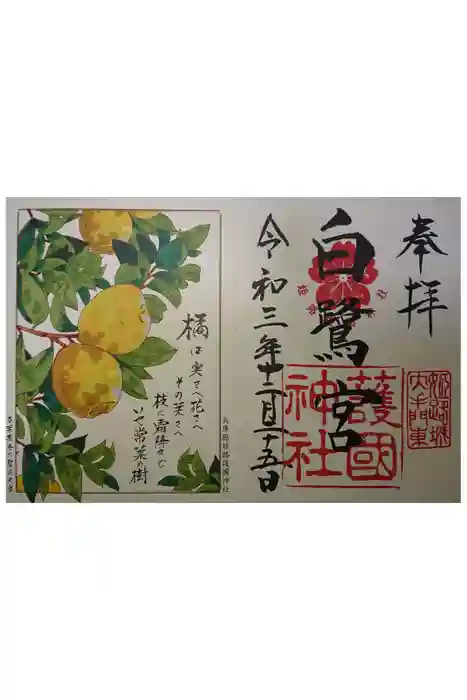 奉拝
姫路城
大手門東
白鷺宮
護國
神社
令和三年十二月二十五日
兵庫縣姫路護國神社
橘は実さへ花さへ
その葉さへ
枝に霜降れど
いや常葉の樹
万葉集 巻六 聖武天皇